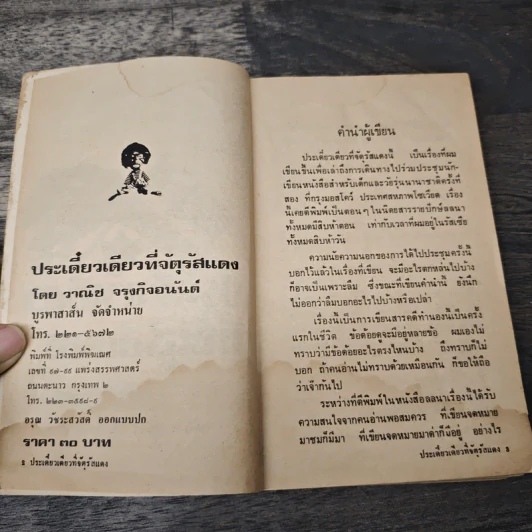 ประเดี๋ยวเดียวที่จัตุรัสแดง
โดย วาณิช จรุงกิจอนันต์
บูรพาสาส์น จัดจำหน่าย
โทร. ๒๒๑-๕๖๗๒
พิมพ์ที่ โรงพิมพ์พิฆเณศ
เลขที่ ๙๗-๙๙ แพร่งสรรพศาสตร์
ถนนตะนาว กรุงเทพ ๒
โทร. ๒๒๓-๓๙๙๘-๙
อรุณ วัชระสวัสดิ์ ออกแบบปก
ราคา ๓๐ บาท
2 ประเดี๋ยวเดียวที่จัตุรัสแดง
คำนำผู้เขียน
ประเดี๋ยวเดียวที่จัตุรัสแดงนี้ เป็นเรื่องที่ผม
เขียนขึ้นเพื่อเล่าถึงการเดินทางไปร่วมประชุมนัก-
เขียนหนังสือสำหรับเด็กและวัยรุ่นนานาชาติครั้งที่
สอง ที่กรุงมอสโคว์ ประเทศสหภาพโซเวียต เรื่อง
นี้เคยตีพิมพ์เป็นตอนๆ ในนิตยสารรายปักษ์ลลนา
ทั้งหมดสิบห้าตอน เท่ากับเวลาที่ผมอยู่ในรัสเซีย
ทั้งหมดสิบห้าวัน
ความนัยความนอกของการได้ไปประชุมครั้งนี้
บอกไว้แล้วในเรื่องที่เขียน จะมีอะไรตกหล่นไปบ้าง
ก็อาจเป็นเพราะลืม ซึ่งขณะที่เขียนคำนำนี้ ยังนึก
ไม่ออกว่าลืมบอกอะไรไปบ้างหรือเปล่า
เรื่องนี้เป็นการเขียนสารคดีทำนองนี้เป็นครั้ง
แรกในชีวิต ข้อด้อยคงจะมีอยู่หลายข้อ ผมเองไม่
ทราบว่ามีข้อด้อยอะไรตรงไหนบ้าง ถึงทราบก็ไม่
บอก ถ้าคนอ่านไม่ทราบด้วยเหมือนกัน ก็ขอให้ถือ
ว่าเจ๊ากันไป
ระหว่างที่ตีพิมพ์ในหนังสือลลนาเรื่องนี้ได้รับ
ความสนใจจากคนอ่านพอสมควร ที่เขียนจดหมาย
มาชมก็มีมา ที่เขียนจดหมายมาด่าก็มีอยู่ อย่างไร
ประเดี๋ยวเดียวที่จัตุรัสแดง 3